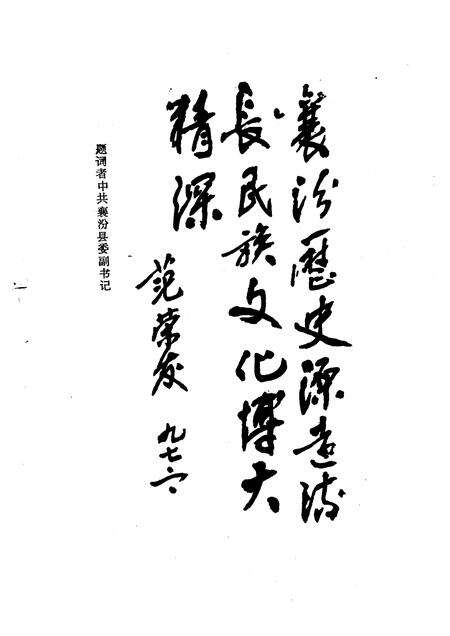 襄汾歷史源遠流
長民族文化博大
精深
范荣发 九七、六
题词者中共襄汾县委副书记